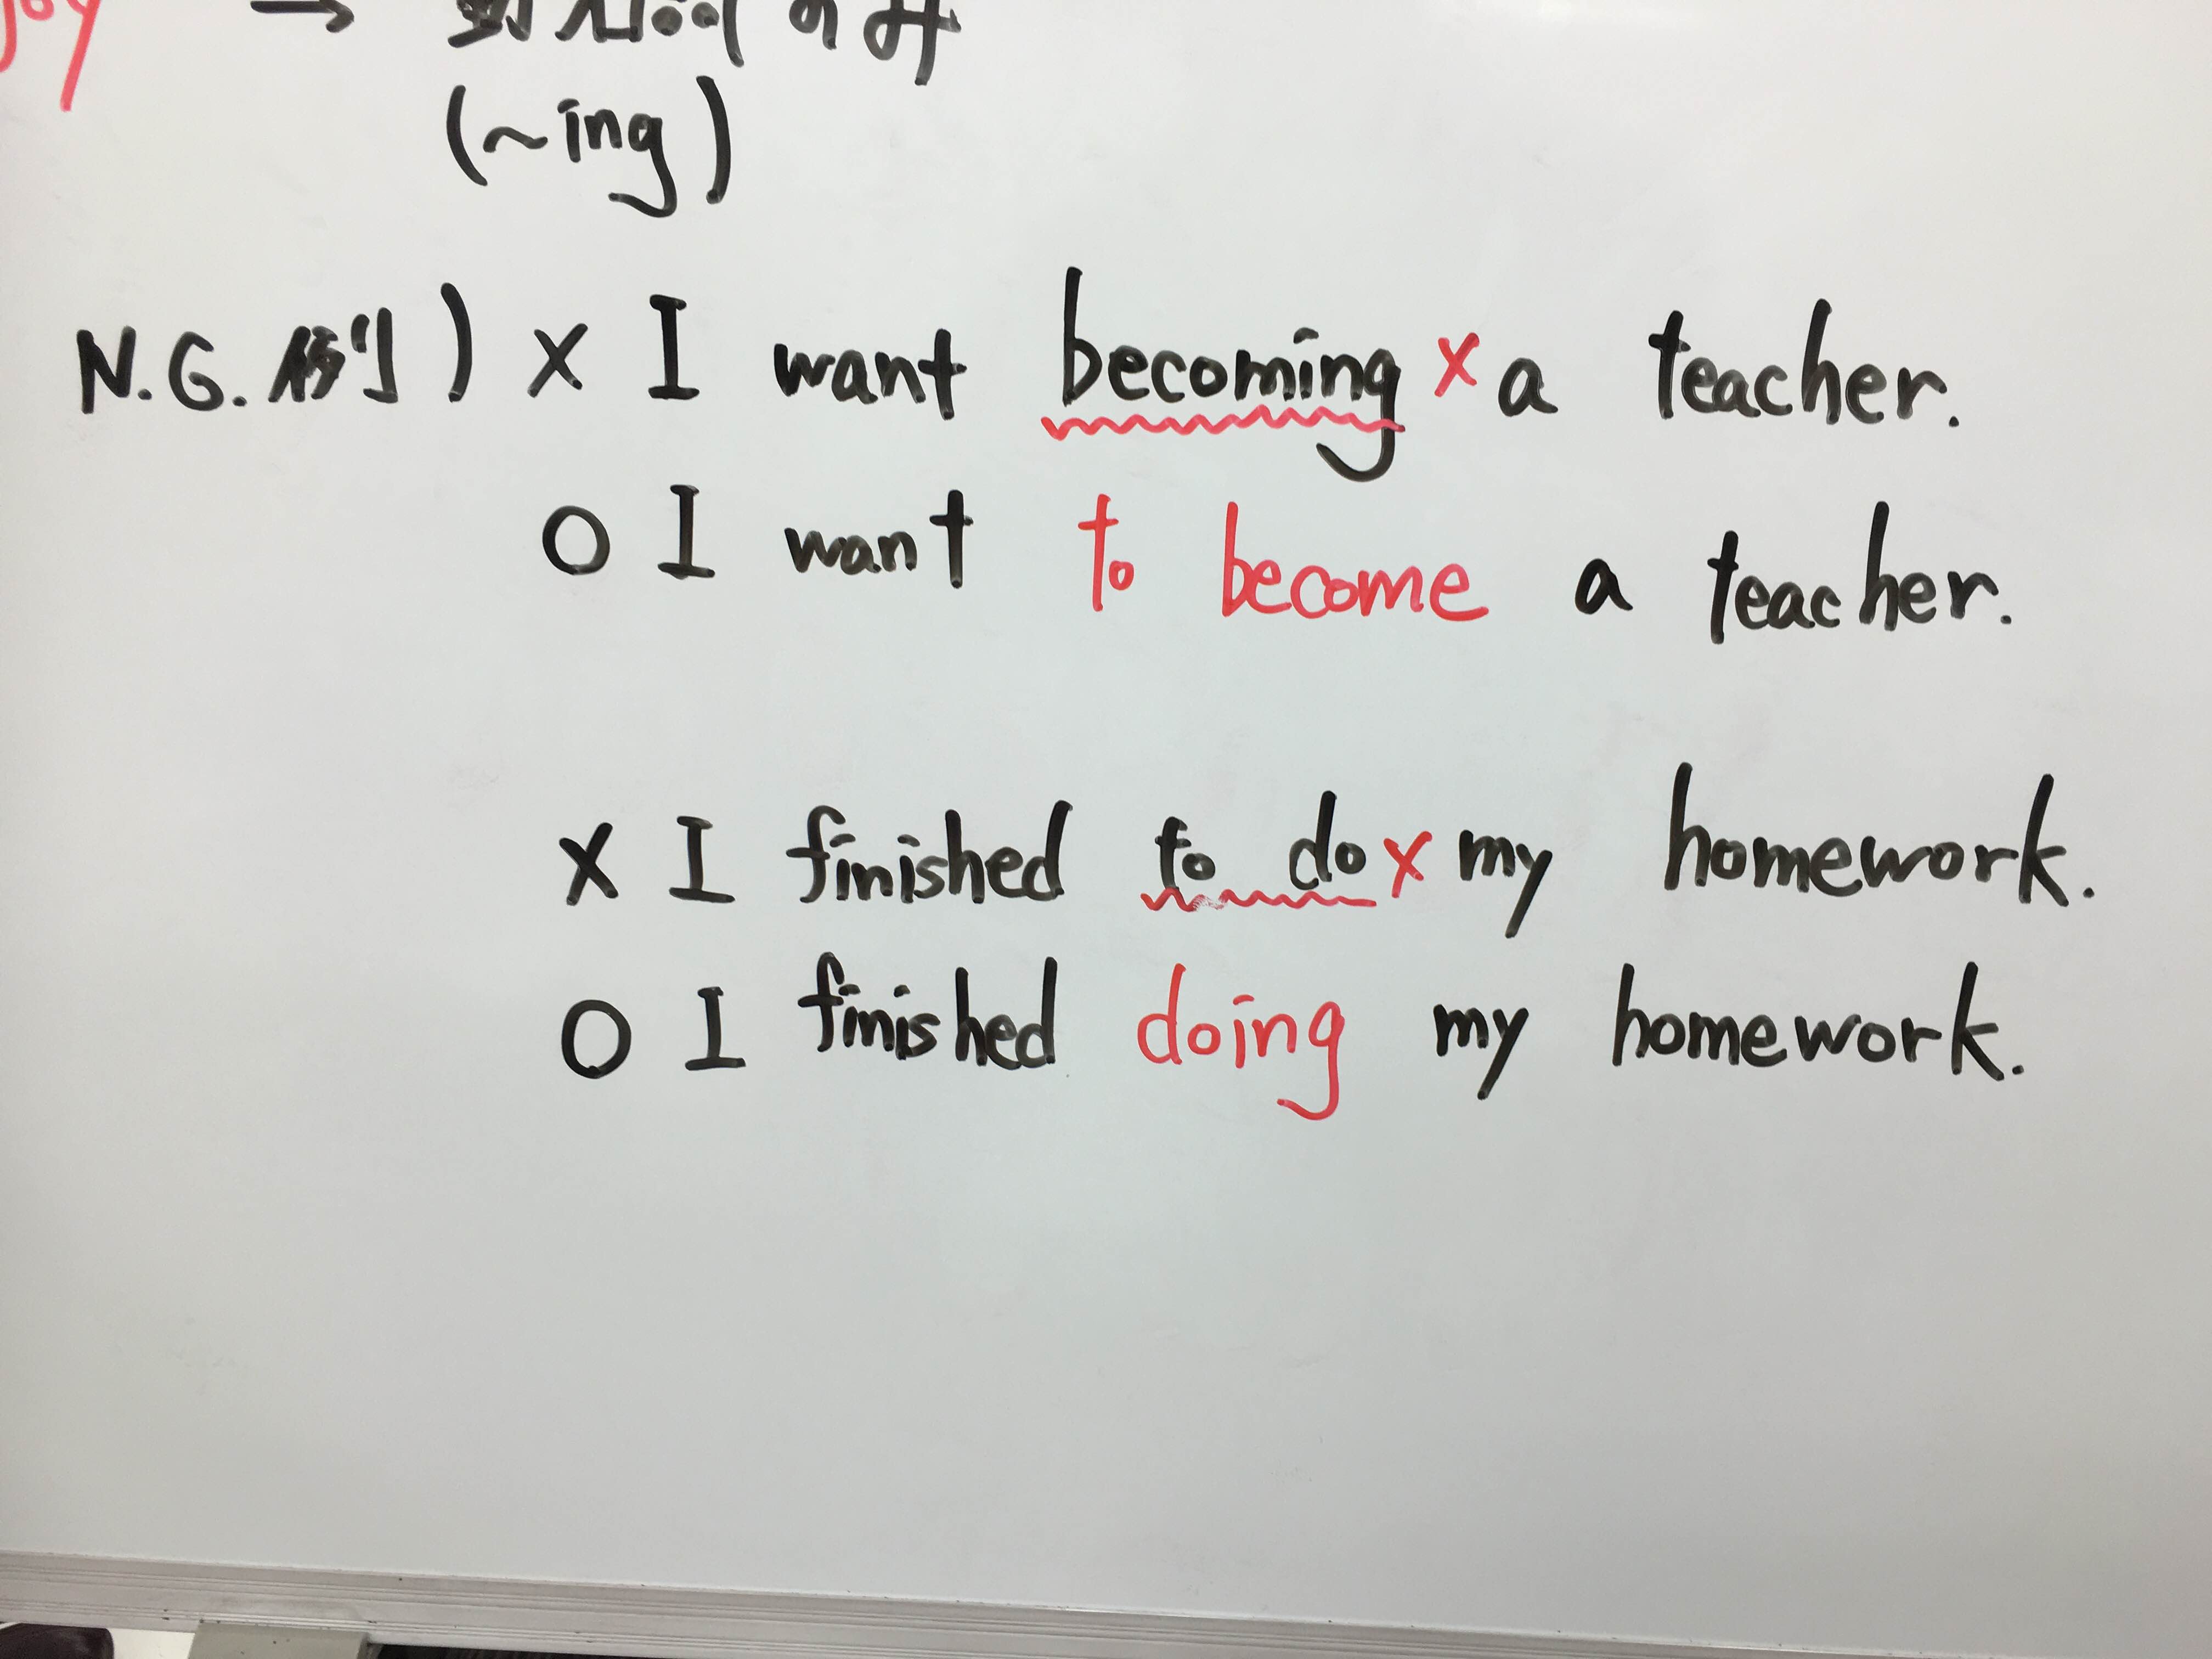 → 動名詞のみ
(~ing)
N.G.例) × I want becoming × a teacher.
○ I want to become a teacher.
× I finished to do × my homework.
○ I finished doing my homework.